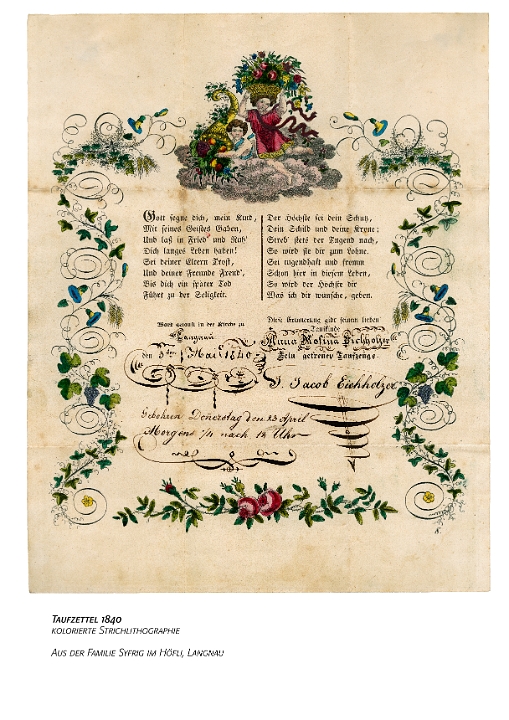 Gott segne dich, mein Kind,
Mit seines Geistes Gaben,
Und laß in Fried' und Ruh'
Dich langes Leben haben!
Sei deiner Eltern Trost,
Und deiner Freunde Freud',
Bis dich ein später Tod
Führt zu der Seligkeit.
Der Höchste sei dein Schutz,
Dein Schild und deine Krone;
Streb' stets der Tugend nach,
So wird sie dir zum Lohne.
Sei tugendhaft und fromm
Schon hier in diesem Leben,
So wird der Höchste dir
Was ich dir wünsche, geben.
Ward getauft in der Kirche zu
Langnau
den 3ten Mai 1840
Diese Erinnerung gibt seinem lieben
Taufkinde
Anna Rosina Eichholzer
Sein getreuer Taufzeuge
J. Jacob Eichholzer
Gebohren Donerstag den 23 April
Morgens nach 12 Uhr
TAUFZETTEL 1840
KOLORIERTE STRICHLITHOGRAPHIE
AUS DER FAMILIE SYFRIG IM HÖFLI, LANGNAU